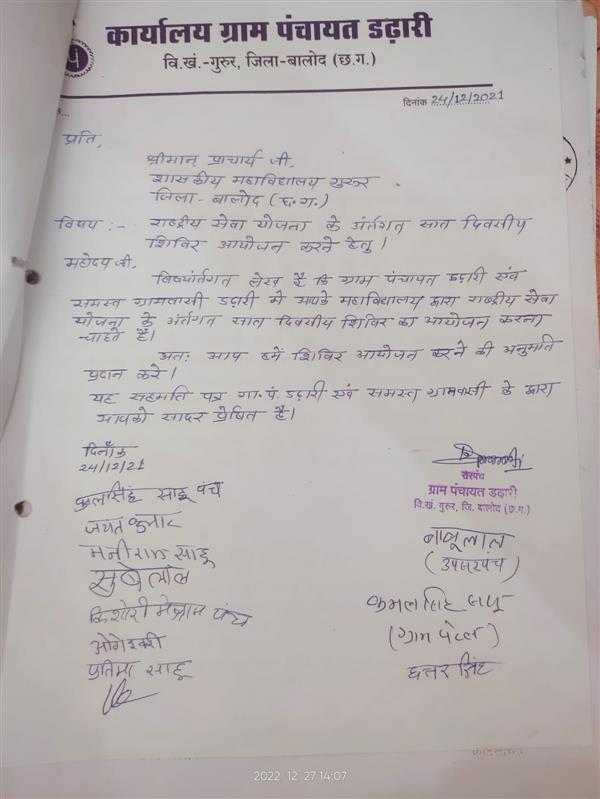 कार्यालय ग्राम पंचायत डढ़ारी
वि.खं.-गुरुर, जिला-बालोद (छ.ग.)
दिनांक 24/12/2021
प्रति,
श्रीमान् प्राचार्य जी.
शासकीय महाविद्यालय गुरूर
जिला- बालोद (छ.ग.)
विषय :- राष्ट्रीय सेवा योजना के अंर्तगत सात दिवसीय
शिविर आयोजन करने हेतु।
महोदय जी.
विषयांर्तगत लेख है कि ग्राम पंचायत डढ़ारी एवं
समस्त ग्रामवासी डढ़ारी में आपके महाविद्यालय द्वारा राष्ट्रीय सेवा
योजना के अंर्तगत सात दिवसीय शिविर का आयोजन करना
चाहते है।
अतः आप हमें शिविर आयोजन करने की अनुमति
प्रदान करे।
यह सहमति पत्र ग्रा.पं. डढ़ारी एवं समस्त ग्रामवासी के द्वारा
आपको सादर प्रेषित है।
दिनाँक
24/12/21
सरपंच
ग्राम पंचायत डढ़ारी
वि.खं. गुरुर, जि. बालोद (छ.ग.)
फुलसिंह साहू पंच
जयंत कुमार
मनीराम साहू
सुबेलाल
किशोरी मेश्राम पंच
प्रतिमा साहू
बाबूलाल
(उपसरपंच)
कमलसिंह साहू
(ग्राम पटेल)
छत्तर सिंह
2022-12-27 14:07